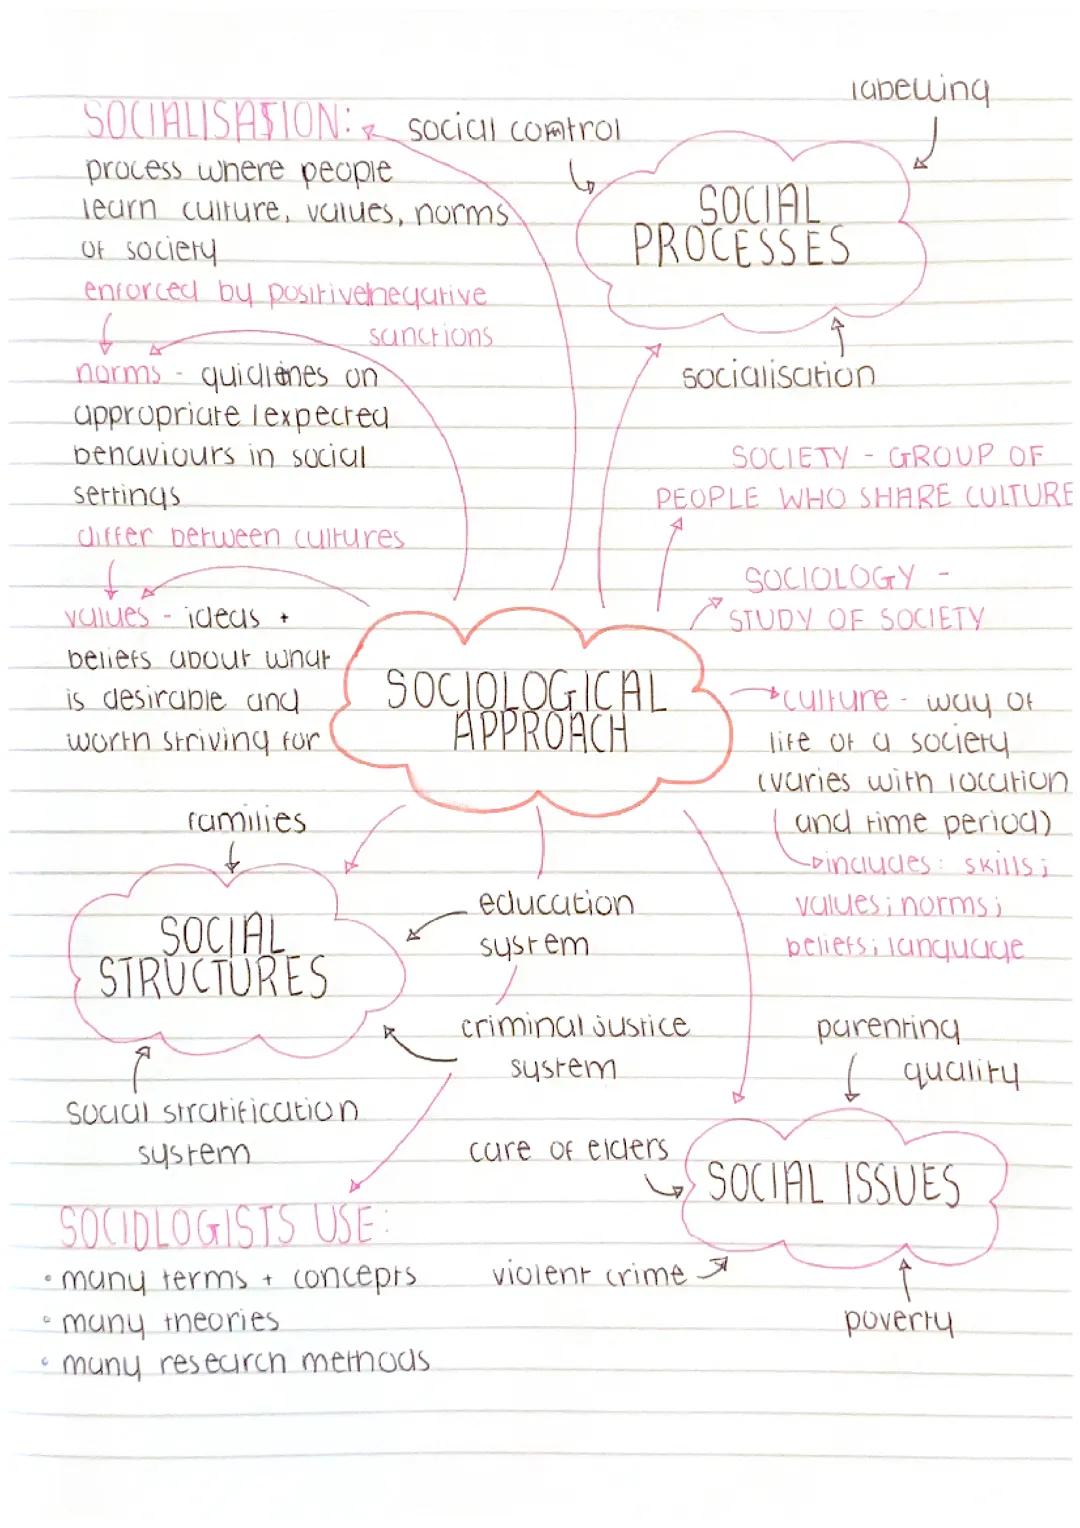 labelling
SOCIALISATION:
social control
process where people
learn culture, values, norms
of society
enforced by positive/negative
sanctions
SOCIAL
PROCESSES
socialisation
norms - guidlines on
appropriate/expected
behaviours in social
settings
differ between cultures
SOCIETY - GROUP OF
PEOPLE WHO SHARE CULTURE
SOCIOLOGY -
STUDY OF SOCIETY
values - ideas +
beliefs about what
is desirable and
worth striving for
SOCIOLOGICAL
APPROACH
culture - way of
life of a society
(varies with location
and time period)
includes: skills;
values; norms;
beliefs; language
families
SOCIAL
STRUCTURES
education
system
criminal justice
system
social stratification
system
parenting
quality
care of elders
SOCIAL ISSUES
violent crime
poverty
SOCIOLOGISTS USE:
• many terms + concepts
• many theories
• many research methods